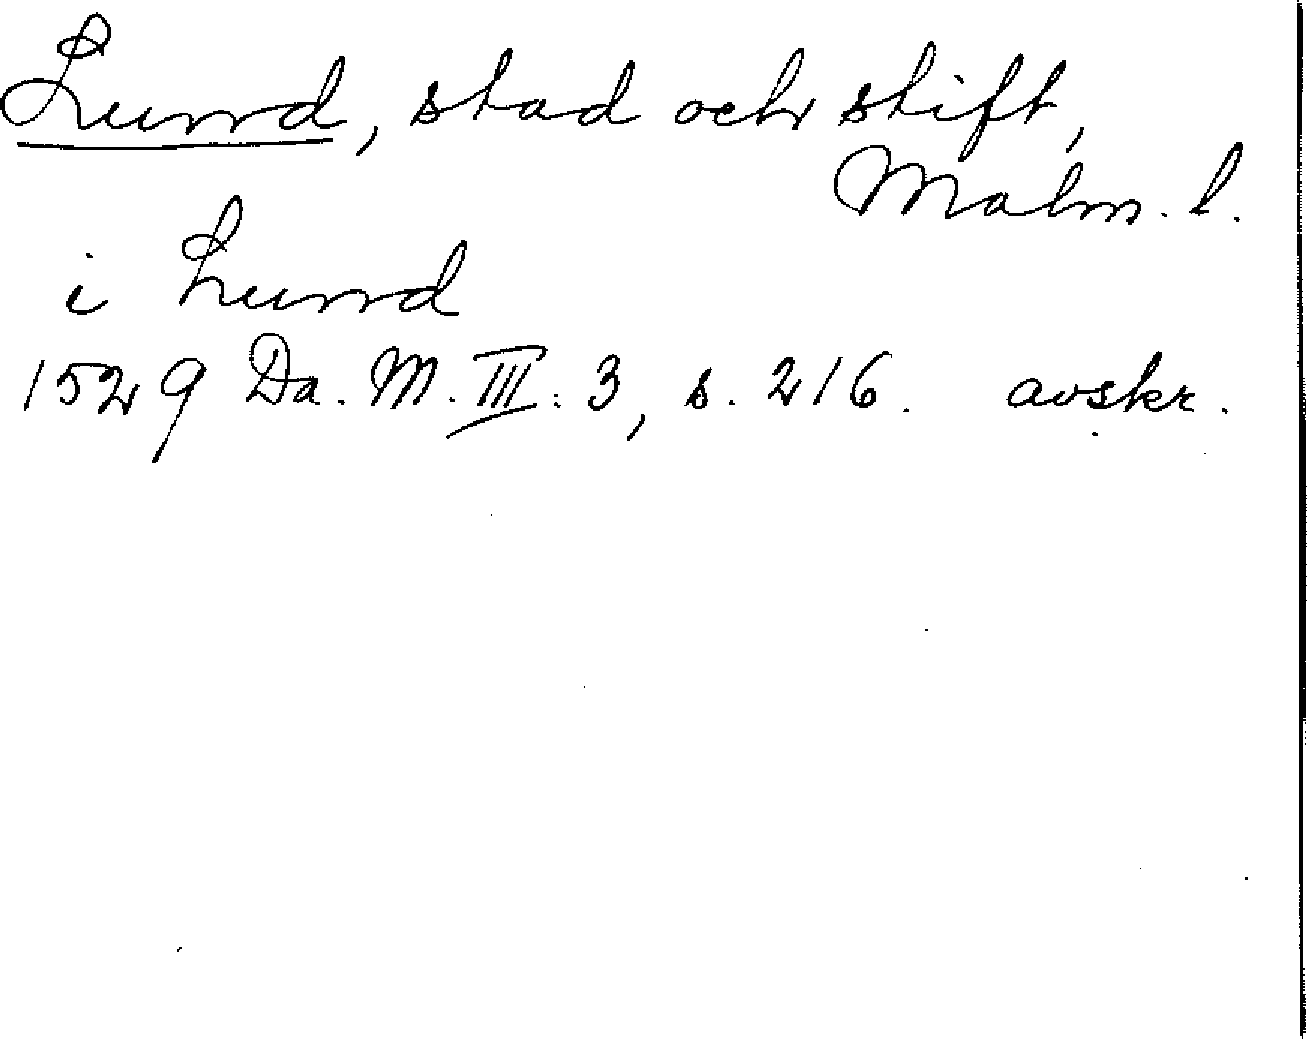 Lund, stad och stift,
Malm. l.
i Lund
1529 Da. M. III: 3, s. 216. avskr.